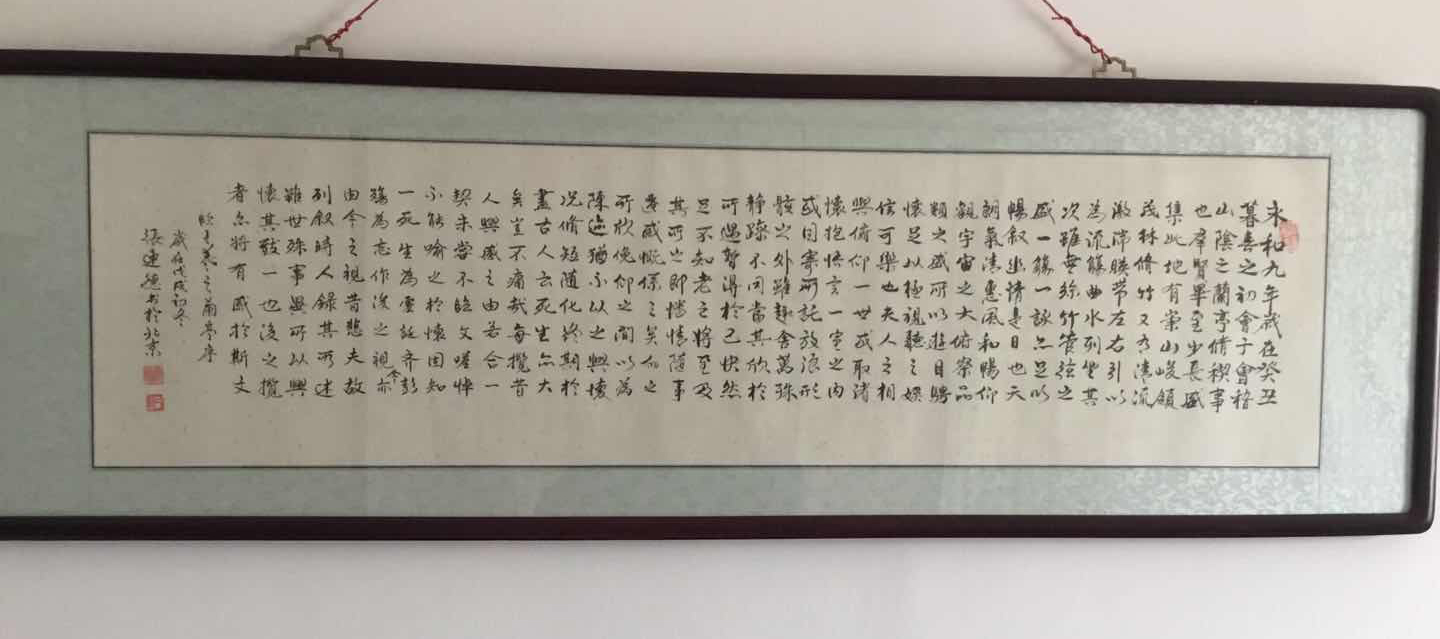 永和九年歲在癸丑
暮春之初會于會稽
山陰之蘭亭脩禊事
也羣賢畢至少長咸
集此地有崇山峻領
茂林脩竹又有清流
激湍暎帶左右引以
為流觴曲水列坐其
次雖無絲竹管弦之
盛一觴一詠亦足以
暢叙幽情是日也天
朗氣清惠風和暢仰
觀宇宙之大俯察品
類之盛所以遊目騁
懷足以極視聽之娛
信可樂也夫人之相
與俯仰一世或取諸
懷抱悟言一室之內
或因寄所託放浪形
骸之外雖趣舍萬殊
靜躁不同當其欣於
所遇暫得於己快然
足不知老之將至及
其所之既惓情隨事
遷感慨係之矣向之
所欣俛仰之間以為
陳迹猶不以之興懷
況脩短隨化終期於
盡古人云死生亦大
矣豈不痛哉每攬昔
人興感之由若合一
契未嘗不臨文嗟悼
不能喻之於懷固知
一死生為虛誕齊彭
殤為妄作後之視今亦
由今之視昔悲夫故
列叙時人錄其所述
雖世殊事異所以興
懷其致一也後之攬
者亦將有感於斯文
臨王羲之蘭亭序
歲在戊戌初冬
張連德書於北京